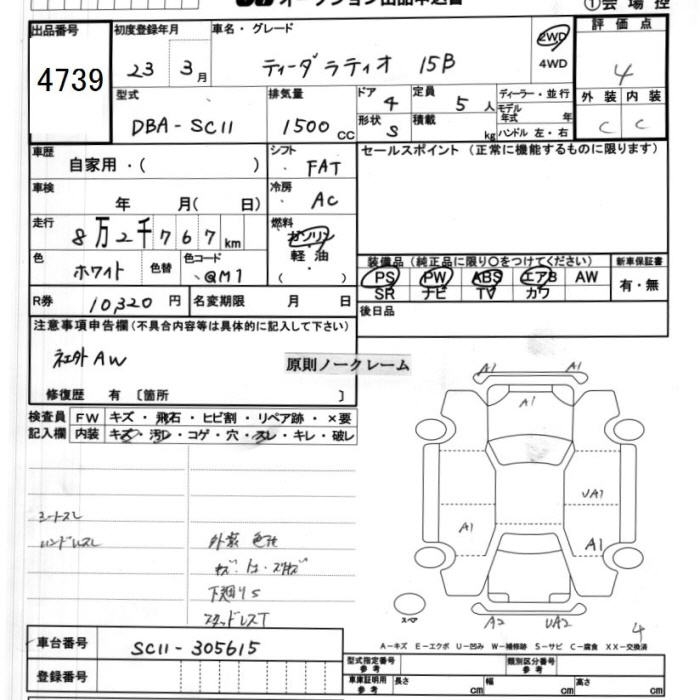 オークション出品申込書
①会場控
出品番号 初度登録年月 車名・グレード 評価点
4739 23 3月 ティーダラティオ 15B 2WD 4WD 4
型式 排気量 ドア 4 定員 5人 ディーラー・並行 外装 内装
DBA-SC11 1500cc 形状 S 積載 kg モデル年式 年 C C
ハンドル 左・右
車歴 自家用・( ) シフト FAT セールスポイント (正常に機能するものに限ります)
車検 年 月( 日) 冷房 AC
走行 8万2千767km 燃料 ガソリン 軽油 ( )
色 ホワイト 色替 色コード QM1
装備品 (純正品に限り○をつけてください) 新車保証書
PS PW ABS エアB AW 有・無
SR ナビ TV カワ
R券 10,320円 名変期限 月 日 後日品
注意事項申告欄(不具合内容等は具体的に記入して下さい)
社外AW
原則ノークレーム
修復歴 有〔箇所 〕
検査員記入欄 FW キズ・飛石・ヒビ割・リペア跡・×要
内装 キズ・汚レ・コゲ・穴・スレ・キレ・破レ
シートスレ
ハンドルスレ
外装 色社
下廻りS
スタッドレスT
A1 A1
A1
UA1
A1 A1
スペア
A2 UA2
4
A-キズ E-エクボ U-凹み W-補修跡 S-サビ C-腐食 XX-交換済
車台番号 SC11-305615
登録番号
型式指定番号 参考 類別区分番号 参考
車庫証明用 参考 長さ cm 幅 cm 高さ cm